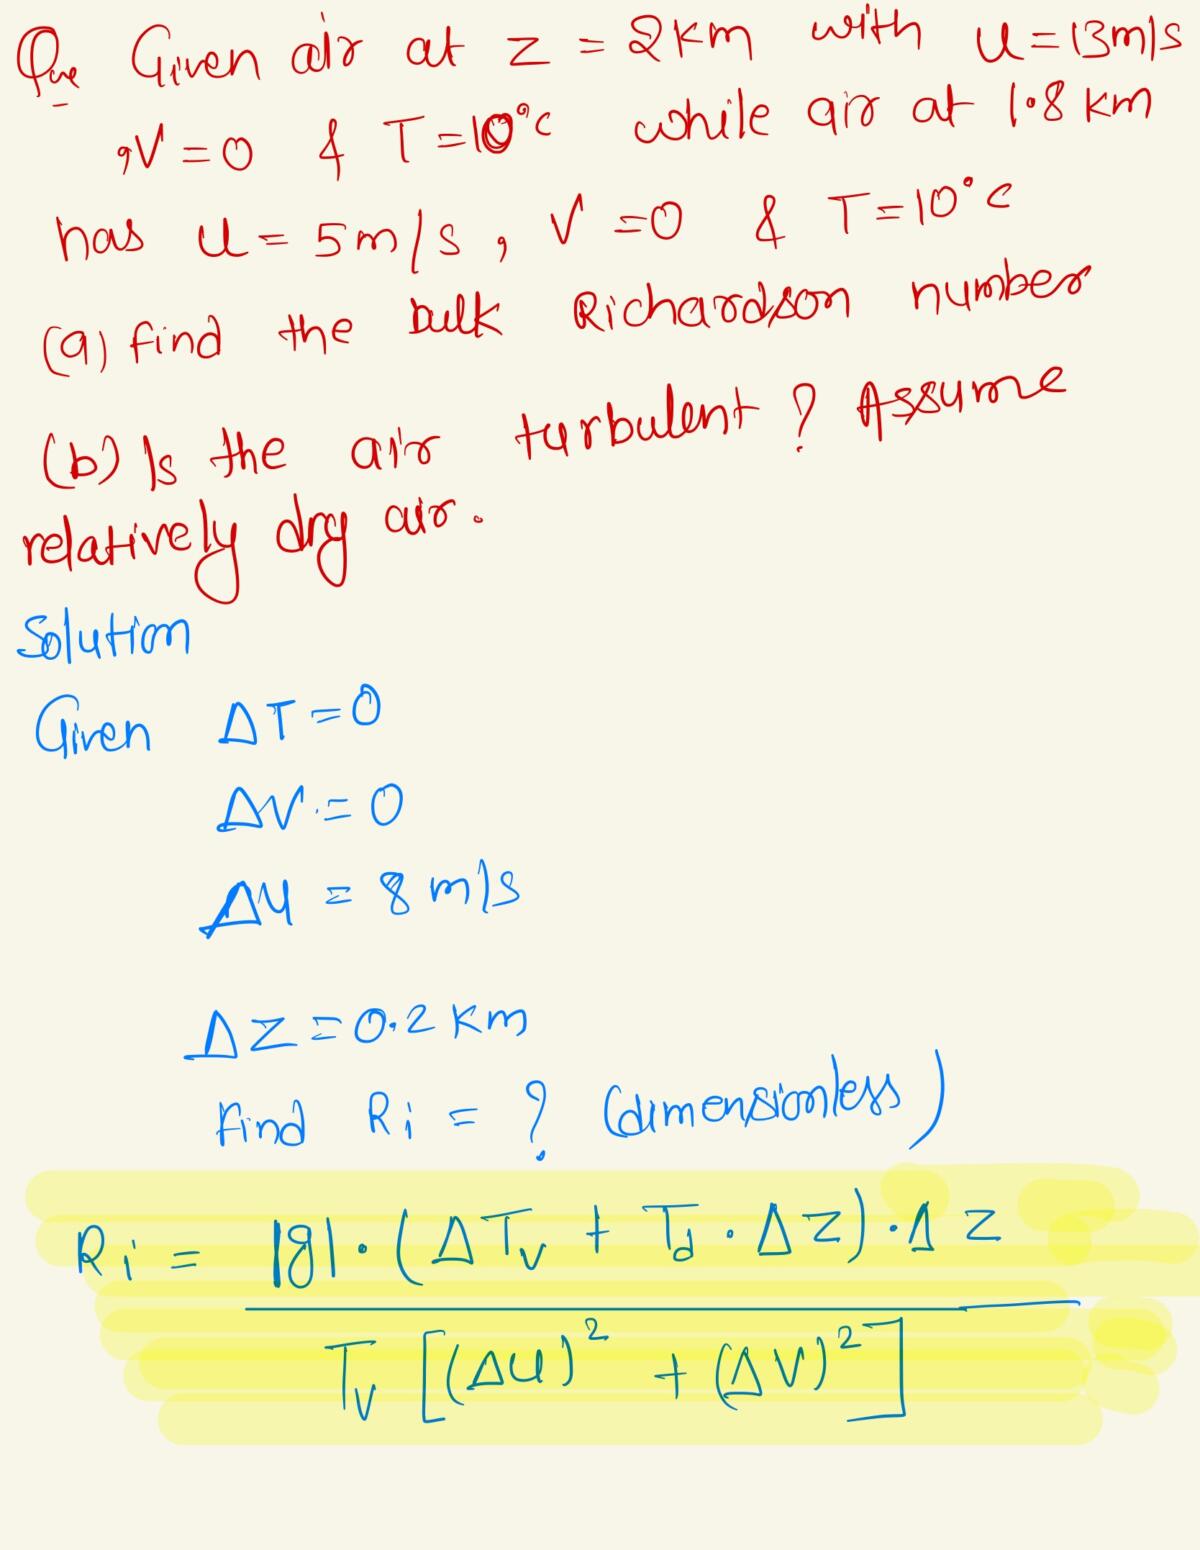 Que Given air at z = 2km with u=13m/s
,V=0 & T=10°c while air at 1.8 km
has u = 5m/s, V=0 & T=10°c
(a) find the bulk Richardson number
(b) Is the air turbulent? Assume
relatively dry air.
Solution
Given ΔT=0
ΔV.=0
Δu = 8 m/s
ΔZ=0.2 Km
Find Ri = ? (dimensionless)
Ri = |g|·(ΔTv + Td·ΔZ)·Δz
Tv [(Δu)² + (ΔV)²]